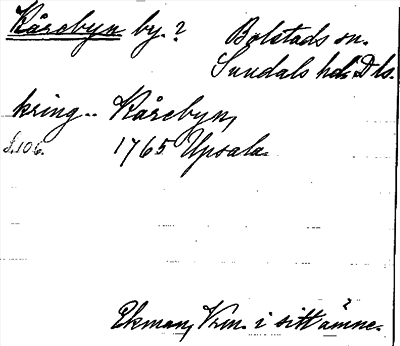 Kårebyn by.? Bolstads sn.
Sundals hd. Dls.
kring.. Kårebyn,
s.106. 1765 Upsala.
Ekman, Vrm. i sitt ämne.
?